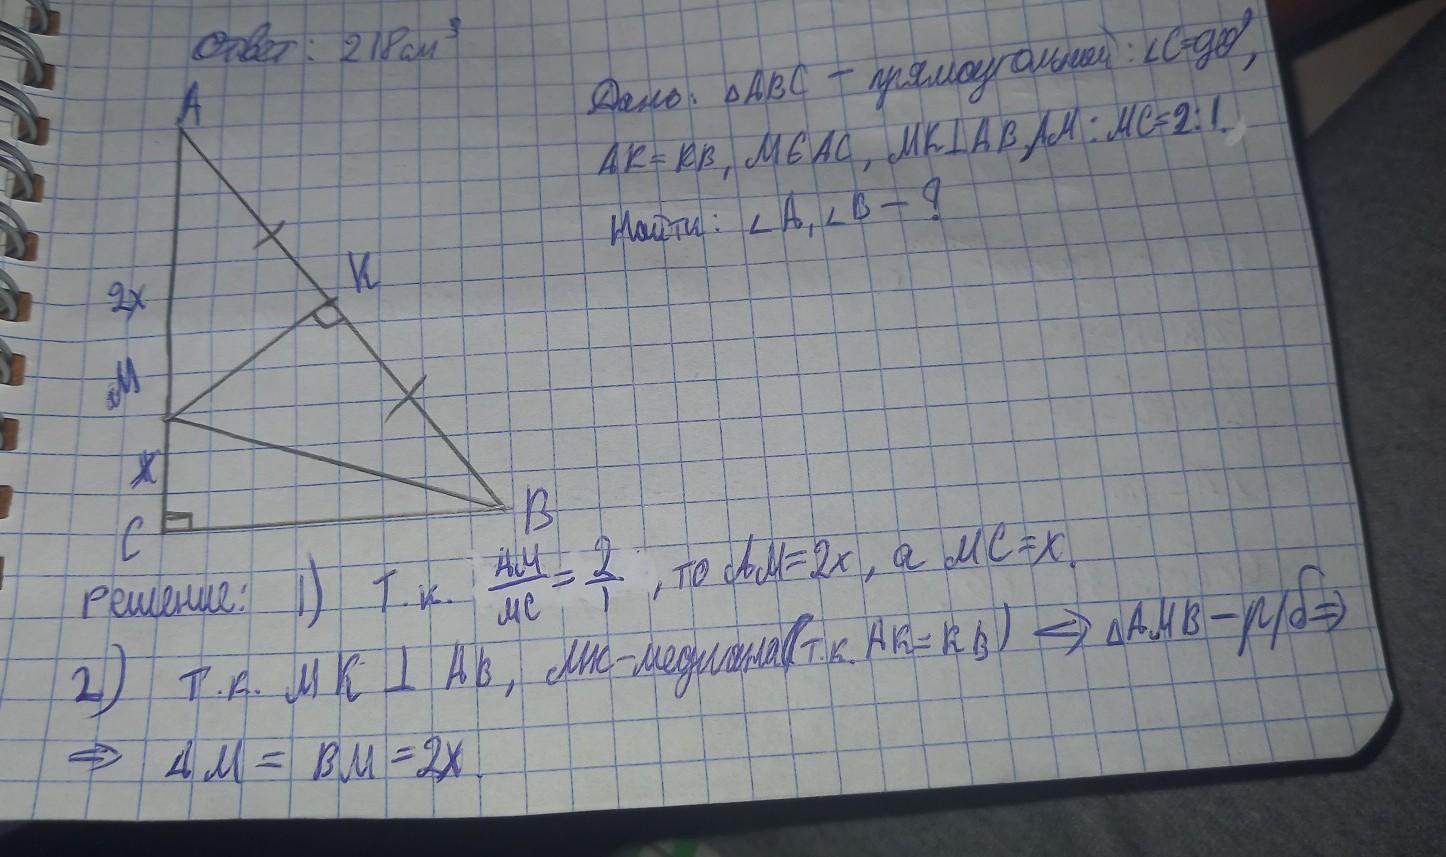 Ответ: 218см³
Дано: △ABC - прямоугольный: ∠C=90°,
AK=KB, M∈AC, MK⊥AB, AM:MC=2:1.
Найти: ∠A, ∠B - ?
A
K
2x
M
x
C
B
Решение: 1) Т.к. AM/MC = 2/1, то AM=2x, а MC=x.
2) т.к. MK ⊥ AB, MK-медиана (т.к. AK=KB) => △AMB - р/б =>
=> AM = BM = 2x.